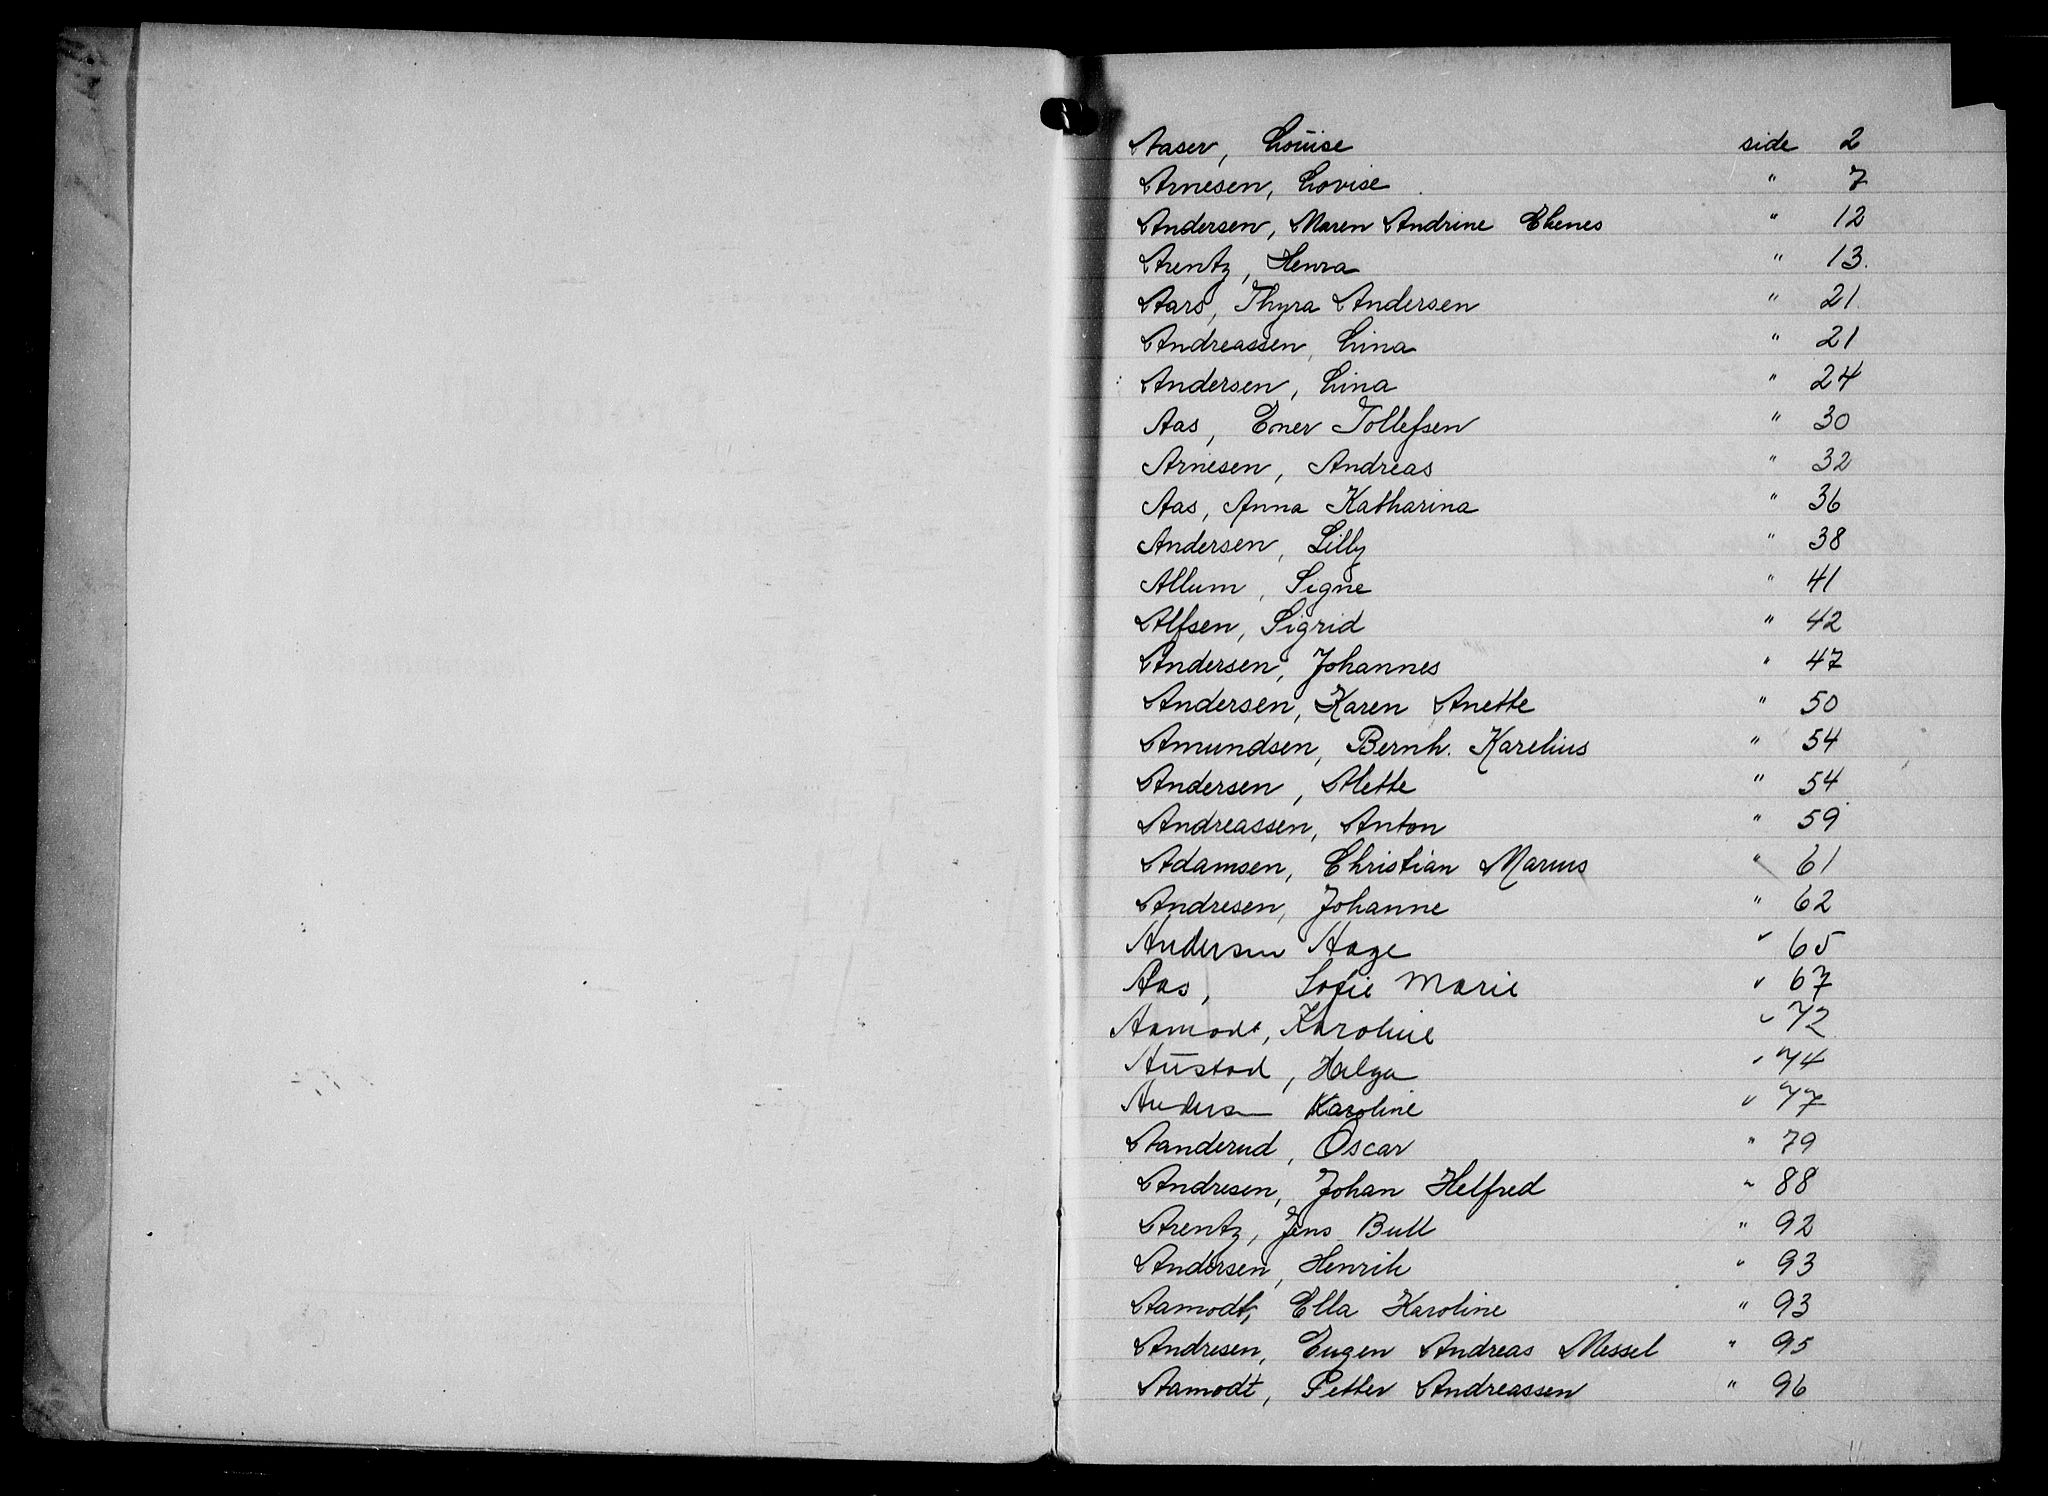 Aaser, Louise side 2
Arnesen, Lovise " 7
Andersen, Maren Andrine Ekenes " 12
Arentz, Henra " 13.
Aars, Thyra Andersen " 21.
Andreassen, Lina " 21
Andersen, Lina " 24
Aas, Ener Tollefsen " 30
Arnesen, Andreas " 32
Aas, Anna Katharina " 36
Andersen, Lilly " 38
Allum, Signe " 41
Alfsen, Sigrid " 42
Andersen, Johannes " 47
Andersen, Karen Anette " 50
Amundsen, Bernh. Karelius " 54
Andersen, Alette " 54
Andreassen, Anton " 59
Adamsen, Christian Marius " 61
Andresen, Johanne " 62
Andersen Aage " 65
Aas, Sofie Marie " 67
Aamodt, Karoline " 72
Austad, Helga " 74
Andersen Karoline " 77
Aanderud, Oscar " 79
Andresen, Johan Helfred " 88
Arentz, Jens Bull " 92
Andersen, Henrik " 93
Aamodt, Ella Karoline " 93
Andresen, Eugen Andreas Messel " 95
Aamodt, Petter Andreassen " 96